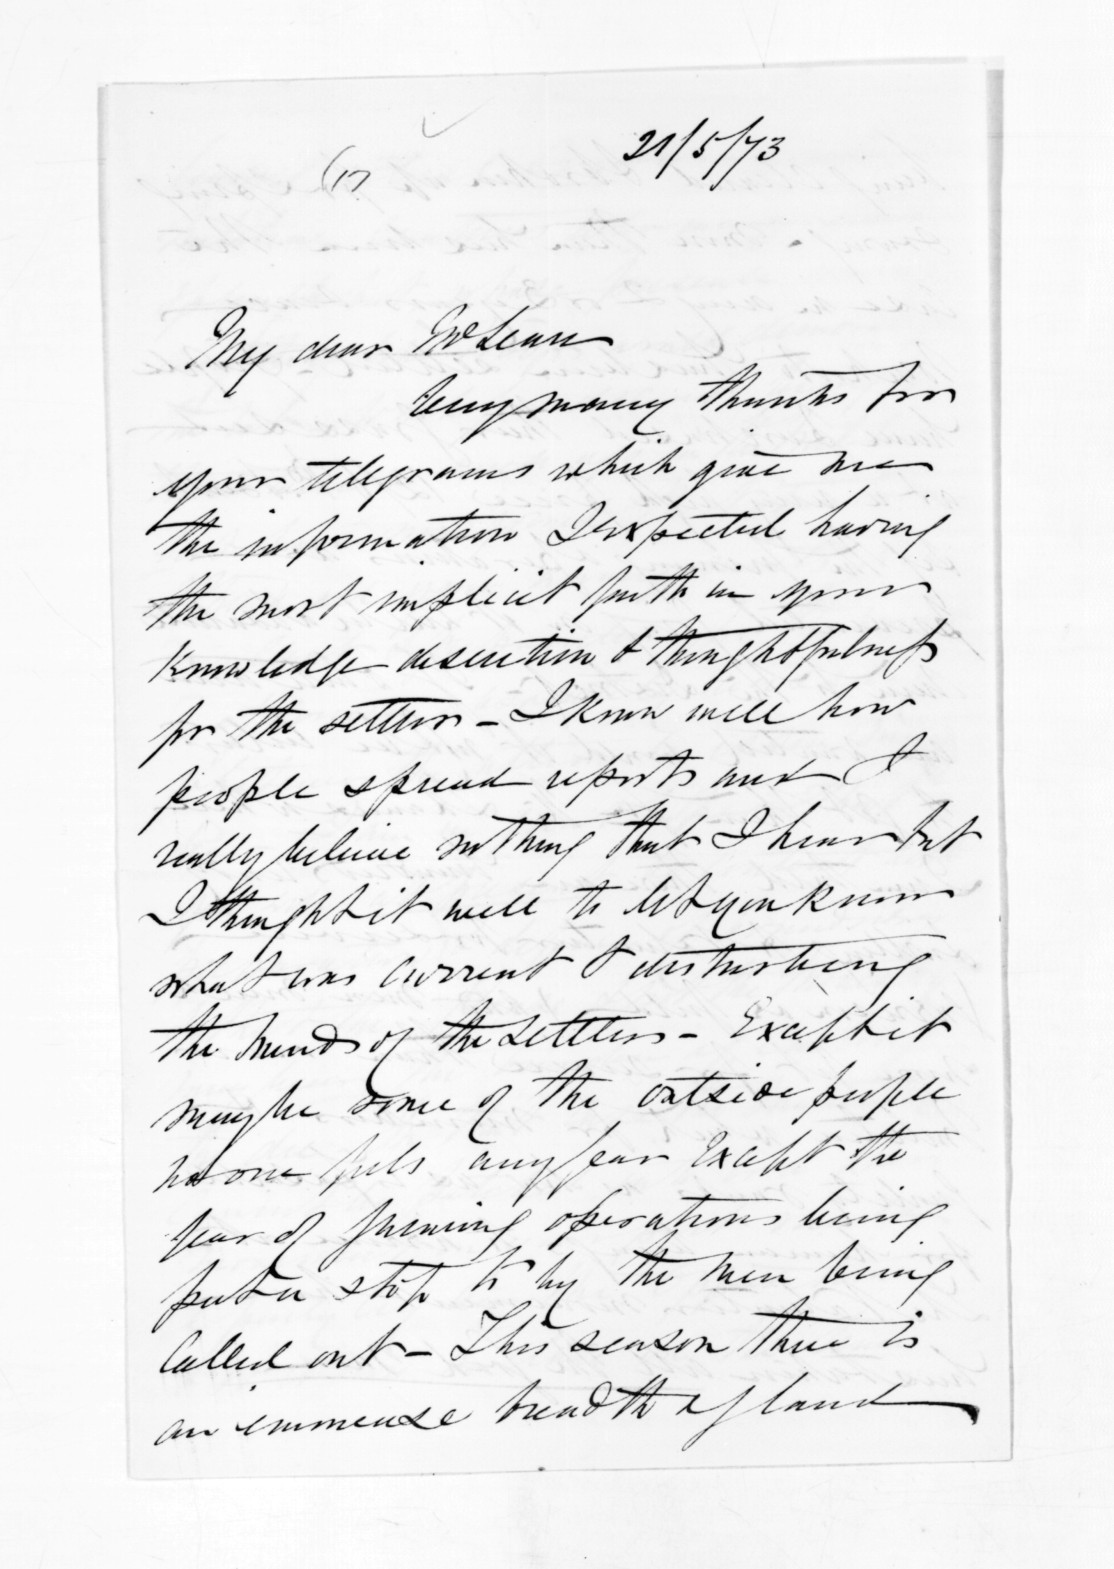 21/5/73
(1)
My dear McLean
Very many thanks for
your telegrams which give me
the information I expected having
the most implicit faith in your
knowledge discretion & thoughtfulness
for the settlers - I know well how
people spread reports and I
really believe nothing that I hear but
I thought it well to let you know
what was current & disturbing
the minds of the settlers - Except it
may be some of the outside people
no one feels any fear except the
fear of farming operations being
put a stop to by the men being
called out - This season there is
an immense breadth of land